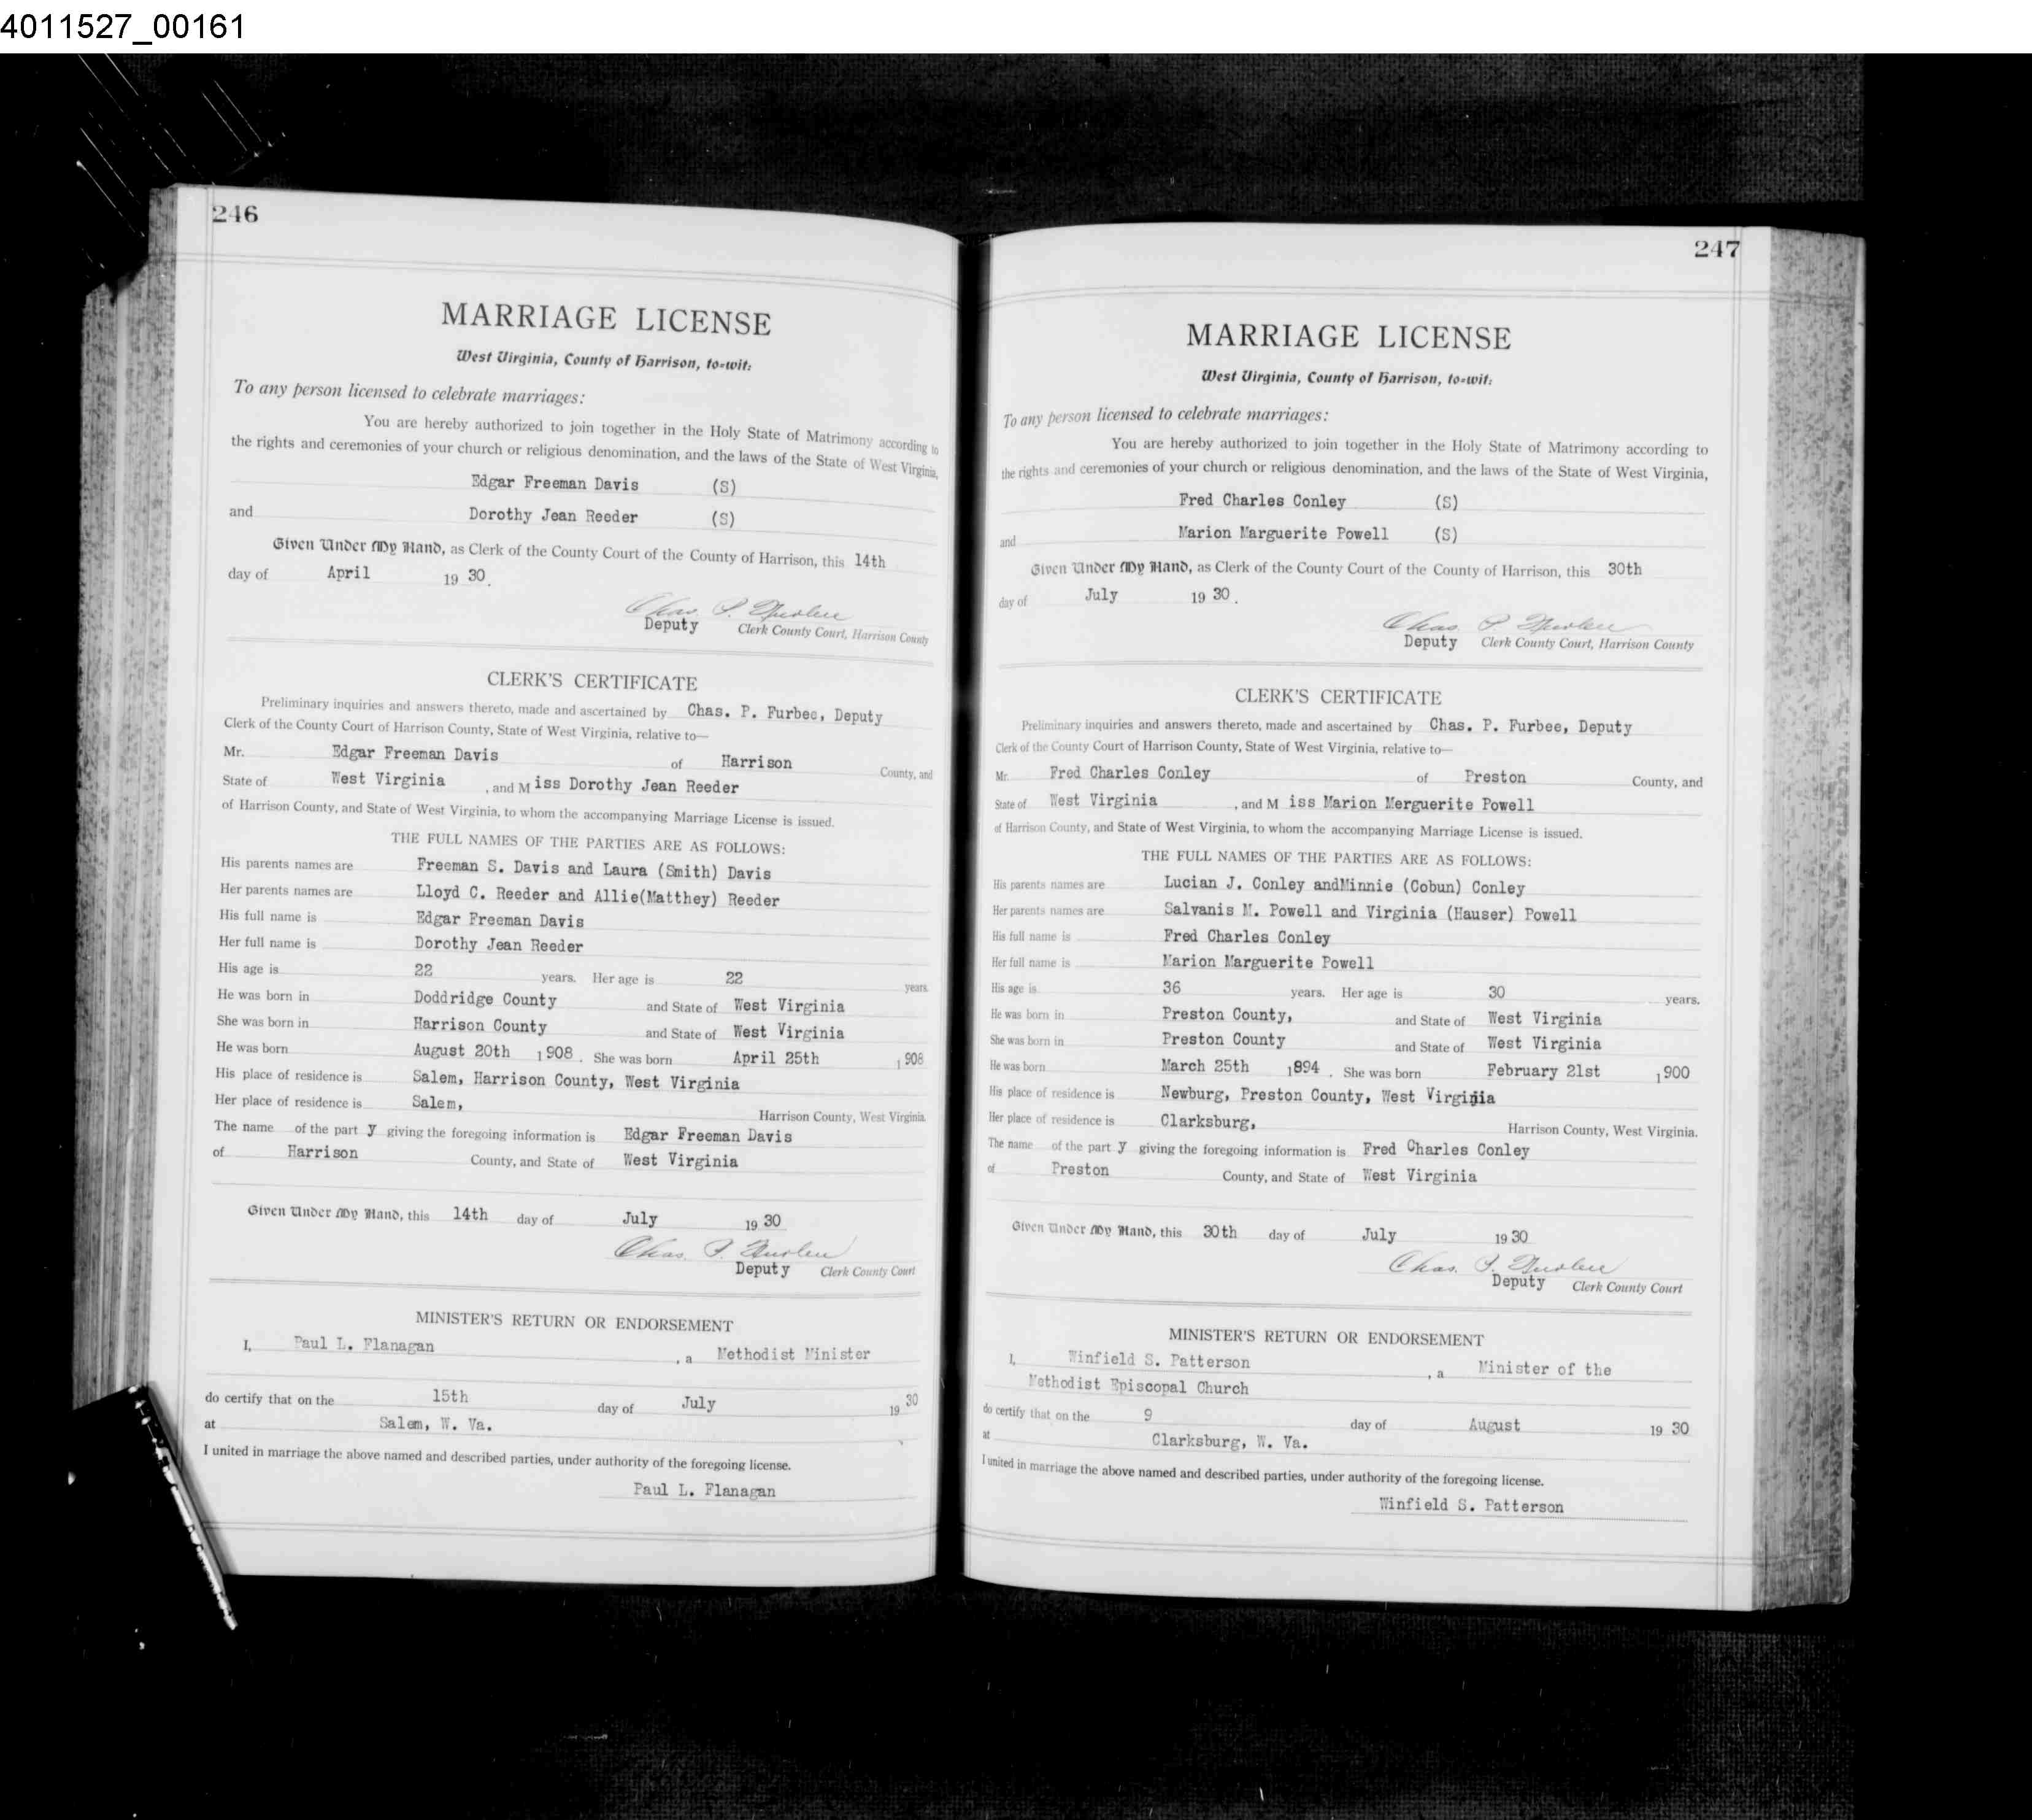 4011527_00161
246
MARRIAGE LICENSE
West Virginia, County of Harrison, to-wit:
To any person licensed to celebrate marriages:
You are hereby authorized to join together in the Holy State of Matrimony according to
the rights and ceremonies of your church or religious denomination, and the laws of the State of West Virginia,
Edgar Freeman Davis (S)
and Dorothy Jean Reeder (S)
Given Under My Hand, as Clerk of the County Court of the County of Harrison, this 14th
day of April 19 30.
Chas. P. Furbee
Deputy Clerk County Court, Harrison County
CLERK'S CERTIFICATE
Preliminary inquiries and answers thereto, made and ascertained by Chas. P. Furbee, Deputy
Clerk of the County Court of Harrison County, State of West Virginia, relative to—
Mr. Edgar Freeman Davis of Harrison County, and
State of West Virginia , and M iss Dorothy Jean Reeder
of Harrison County, and State of West Virginia, to whom the accompanying Marriage License is issued.
THE FULL NAMES OF THE PARTIES ARE AS FOLLOWS:
His parents names are Freeman S. Davis and Laura (Smith) Davis
Her parents names are Lloyd C. Reeder and Allie(Matthey) Reeder
His full name is Edgar Freeman Davis
Her full name is Dorothy Jean Reeder
His age is 22 years. Her age is 22 years.
He was born in Doddridge County and State of West Virginia
She was born in Harrison County and State of West Virginia
He was born August 20th 1 908 . She was born April 25th 1 908
His place of residence is Salem, Harrison County, West Virginia
Her place of residence is Salem, Harrison County, West Virginia.
The name of the part y giving the foregoing information is Edgar Freeman Davis
of Harrison County, and State of West Virginia
Given Under My Hand, this 14th day of July 19 30
Chas. P. Furbee
Deputy Clerk County Court
MINISTER'S RETURN OR ENDORSEMENT
I, Paul L. Flanagan , a Methodist Minister
do certify that on the 15th day of July 19 30
at Salem, W. Va.
I united in marriage the above named and described parties, under authority of the foregoing license.
Paul L. Flanagan
247
MARRIAGE LICENSE
West Virginia, County of Harrison, to-wit:
To any person licensed to celebrate marriages:
You are hereby authorized to join together in the Holy State of Matrimony according to
the rights and ceremonies of your church or religious denomination, and the laws of the State of West Virginia,
Fred Charles Conley (S)
and Marion Marguerite Powell (S)
Given Under My Hand, as Clerk of the County Court of the County of Harrison, this 30th
day of July 19 30 .
Chas. P. Furbee
Deputy Clerk County Court, Harrison County
CLERK'S CERTIFICATE
Preliminary inquiries and answers thereto, made and ascertained by Chas. P. Furbee, Deputy
Clerk of the County Court of Harrison County, State of West Virginia, relative to—
Mr. Fred Charles Conley of Preston County, and
State of West Virginia , and M iss Marion Merguerite Powell
of Harrison County, and State of West Virginia, to whom the accompanying Marriage License is issued.
THE FULL NAMES OF THE PARTIES ARE AS FOLLOWS:
His parents names are Lucian J. Conley andMinnie (Cobun) Conley
Her parents names are Salvanis M. Powell and Virginia (Hauser) Powell
His full name is Fred Charles Conley
Her full name is Marion Marguerite Powell
His age is 36 years. Her age is 30 years.
He was born in Preston County, and State of West Virginia
She was born in Preston County and State of West Virginia
He was born March 25th 1894 . She was born February 21st 1 900
His place of residence is Newburg, Preston County, West Virginia
Her place of residence is Clarksburg, Harrison County, West Virginia.
The name of the part y giving the foregoing information is Fred Charles Conley
of Preston County, and State of West Virginia
Given Under My Hand, this 30th day of July 19 30
Chas. P. Furbee
Deputy Clerk County Court
MINISTER'S RETURN OR ENDORSEMENT
I, Winfield S. Patterson , a Minister of the
Methodist Episcopal Church
do certify that on the 9 day of August 19 30
at Clarksburg, W. Va.
I united in marriage the above named and described parties, under authority of the foregoing license.
Winfield S. Patterson